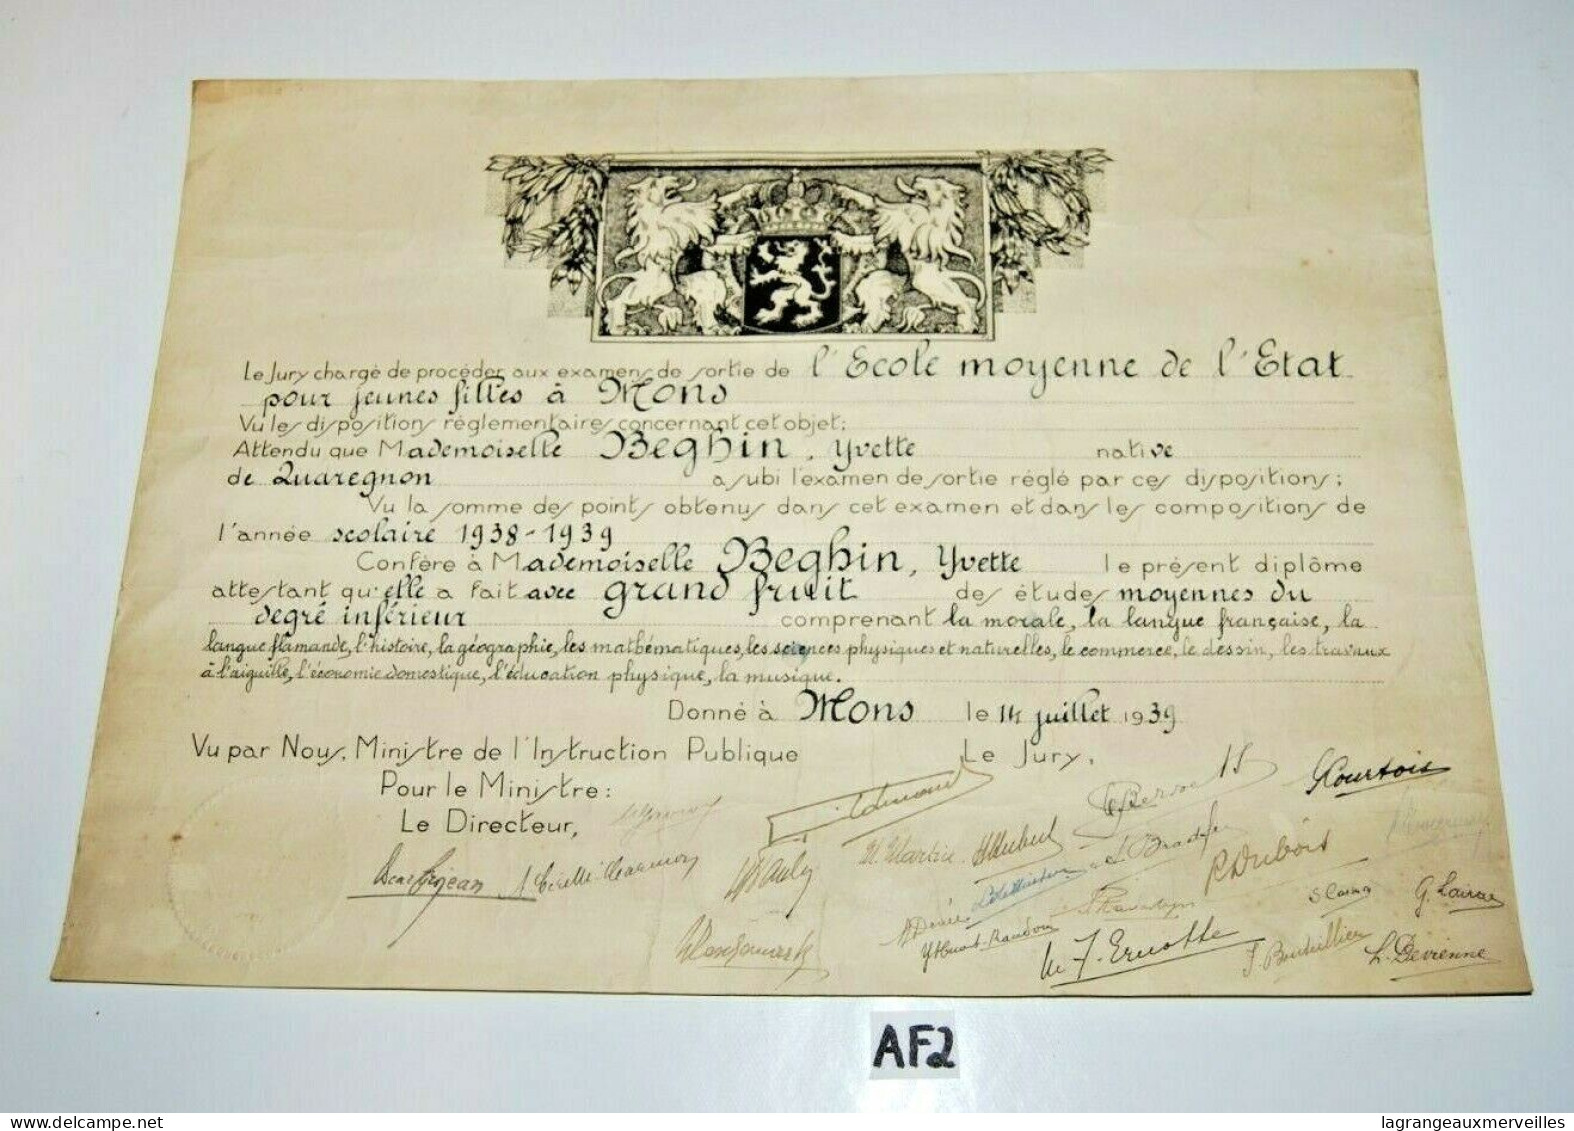 Le Jury chargé de procéder aux examens de sortie de l'Ecole moyenne de l'Etat
pour jeunes filles à Mons
Vu les dispositions réglementaires concernant cet objet;
Attendu que Mademoiselle Beghin, Yvette native
de Quaregnon a subi l'examen de sortie réglé par ces dispositions;
Vu la somme des points obtenus dans cet examen et dans les compositions de
l'année scolaire 1938-1939
Confère à Mademoiselle Beghin, Yvette le présent diplôme
attestant qu'elle a fait avec grand fruit des études moyennes du
degré inférieur comprenant la morale, la langue française, la
langue flamande, l'histoire, la géographie, les mathématiques, les sciences physiques et naturelles, le commerce, le dessin, les travaux
à l'aiguille, l'économie domestique, l'éducation physique, la musique.
Donné à Mons le 14 juillet 1939
Vu par Nous, Ministre de l'Instruction Publique Le Jury,
Pour le Ministre:
Le Directeur,
GCourtois
M. Martin HHubut
R Dubois
G. Lairas
M. F. Ernotte
J. Bouteillier
L. Devienne
AF2
lagrangeauxmerveilles